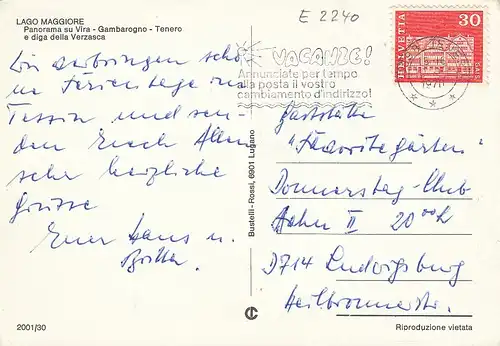 LAGO MAGGIORE
Panorama su Vira - Gambarogno - Tenero
e diga della Verzasca
E 2240
HELVETIA
30
VACANZE!
Annunciate per tempo
alla posta il vostro
cambiamento d'indirizzo!
Wir verbringen schö-
ne Ferientage im
Tessin und sen-
den Euch Allen
sehr herzliche
Grüsse
Euer Hans u.
Gaststätte
"Favoritegärten"
Donnerstag-Club
Bahn II 20ooh
D714 Ludwigsburg
Heilbronnerstr.
Busbelli - Rossi, 6901 Lugano
2001/30
Riproduzione vietata